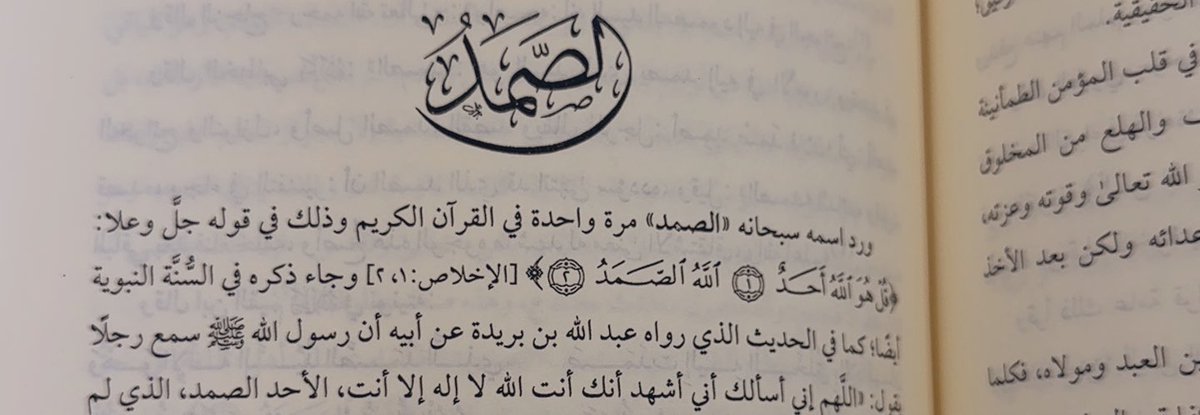 الصَّمَدُ
ورد اسمه سبحانه «الصمد» مرة واحدة في القرآن الكريم وذلك في قوله جلَّ وعلا:
﴿قُلْ هُوَ ٱللَّهُ أَحَدٌ ۝١ ٱللَّهُ ٱلصَّمَدُ ۝٢﴾ [الإخلاص:٢،١] وجاء ذكره في السُّنَّة النبوية
أيضًا؛ كما في الحديث الذي رواه عبد الله بن بريدة عن أبيه أن رسول الله ﷺ سمع رجلًا
يقول: «اللَّهم إني أسألك أني أشهد أنك أنت الله لا إله إلا أنت، الأحد الصمد، الذي لم
الحقيقية.
في قلب المؤمن الطمأنينة
والهلع من المخلوق
الله تعالىٰ وقوته وعزته،
ولكن بعد الأخذ
العبد ومولاه، فكلما